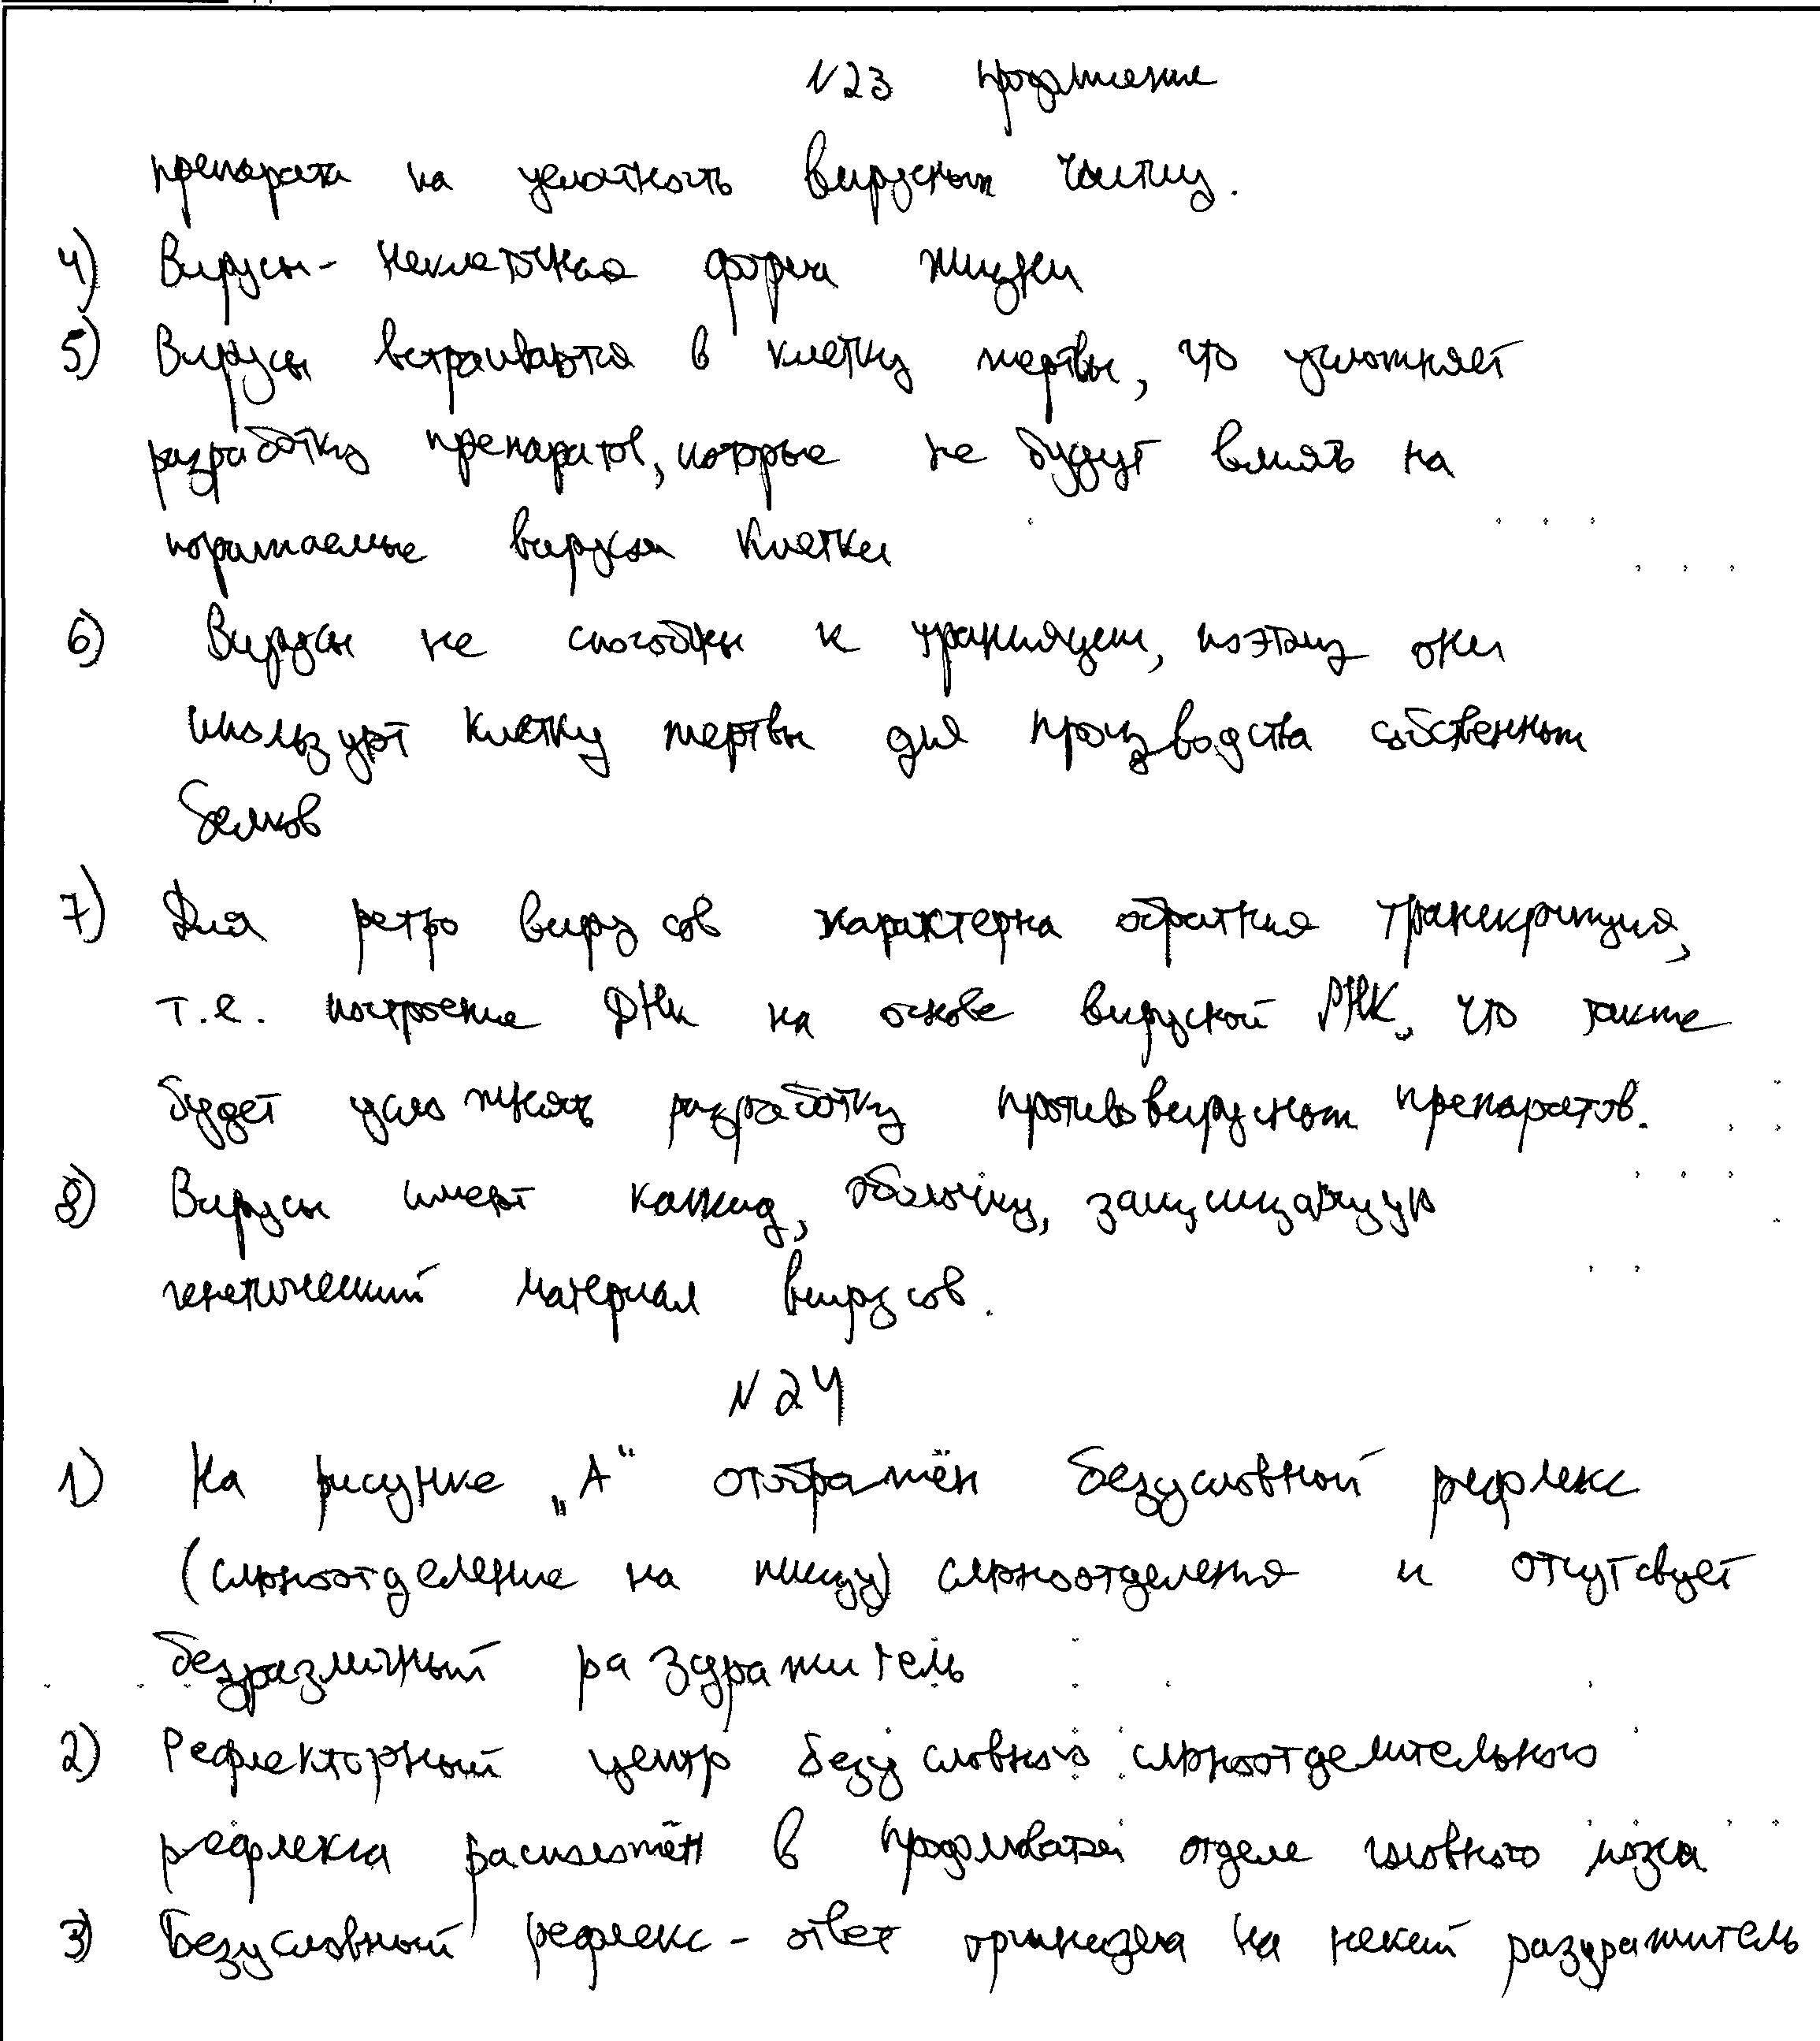 N23 продолжение
препарата на целостность вирусных частиц.
4) Вирусы - неклеточная форма жизни
5) Вирусы встраиваются в клетку жертвы, что усложняет
разработку препаратов, которые не будут влиять на
поражаемые вирусом клетки
6) Вирусы не способны к трансляции, поэтому они
используют клетку жертвы для производства собственных
белков
7) Для ретро вирусов характерна обратная транскрипция,
т.е. построение ДНК на основе вирусной РНК, что также
будет усложнять разработку противовирусных препаратов.
8) Вирусы имеют капсид, оболочку, защищающую
генетический материал вирусов.
N24
1) На рисунке „А“ отображён безусловный рефлекс
(слюноотделение на пищу) слюноотделения и отсутсвует
безразличный раздражитель
2) Рефлекторный центр безусловного слюноотделительного
рефлекса расположён в продолговатом отделе головного мозга
3) Безусловный рефлекс - ответ организма на некий раздражитель